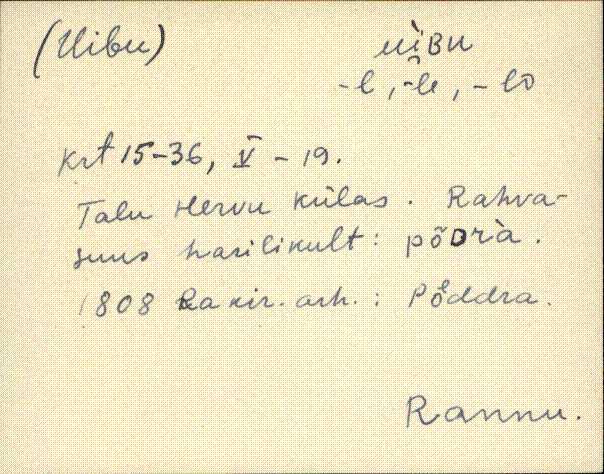 (Uibu) uìʙu
-l, -le, -lò
Krt 15-36, V - 19.
Talu Hervu külas. Rahva-
suus harilikult: põᴅrà.
1808 Ra kir. arh.: Põddra.
Rannu.